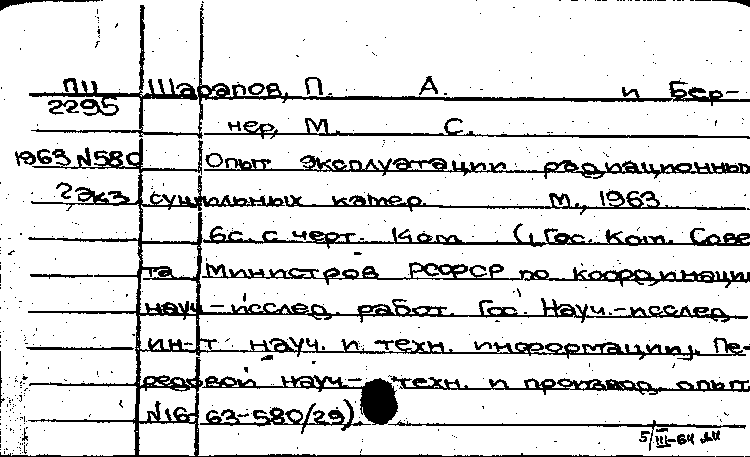 ПЦ Шарапов, П. А. и Бер-
2295
нер, М. С.
1963 N580 Опыт эксплуатации радиационных
2экз сушильных камер. М., 1963
6с. с черт. 14см (Гос. Ком. Сове-
та Министров РСФСР по координации
науч-исслед. работ. Гос. Науч.-исслед.
ин-т науч. и техн. информации). Пе-
редовой науч.-техн. и производ. опыт
N16-63-580/29)
5/III-64